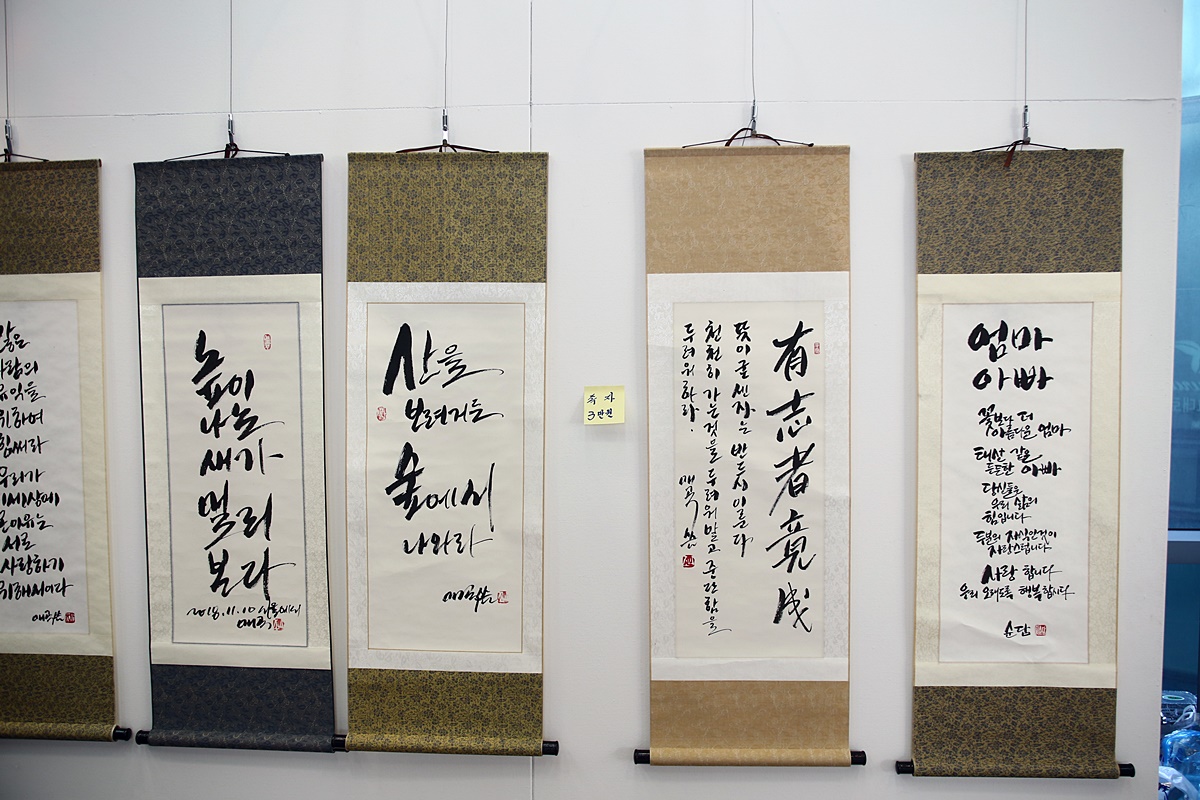 같은
사람의
유익을
위하여
힘써라
우리가
이 세상에
온 이유는
서로
사랑하기
위해서이다
매곡 씀
높이
나는
새가
멀리
본다
2018.11.10 서울에서
매곡
산을
보려거든
숲에서
나와라
매곡 씀
족자
3만원
有志者竟成
뜻이 굳센 자는 반드시 이룬다
천천히 가는 것을 두려워 말고 중단함을
두려워하라.
매곡 씀
엄마
아빠
꽃보다 더
아름다운 엄마
태산 같은
든든한 아빠
당신들은
우리 삶의
힘입니다
두 분의 자식인 것이
자랑스럽니다
사랑 합니다
우리 오래도록 행복합시다
윤담